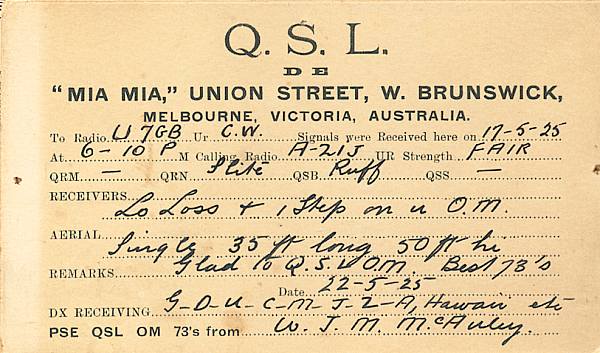 Q. S. L.
DE
"MIA MIA," UNION STREET, W. BRUNSWICK,
MELBOURNE, VICTORIA, AUSTRALIA.
To Radio U 7GB Ur C.W. Signals were Received here on 17-5-25
At 6-10 P M Calling Radio A-2IJ UR Strength FAIR
QRM — QRN Slite QSB Ruff QSS —
RECEIVERS Lo Loss + 1 Step on u O.M.
AERIAL Single 35 ft long 50 ft hi
REMARKS Glad to Q.S.L. O.M. Best 73's
Date 22-5-25
DX RECEIVING G-O-U-C-M-J-Z-A, Hawaii etc
PSE QSL OM 73's from W. J. M. McAuley